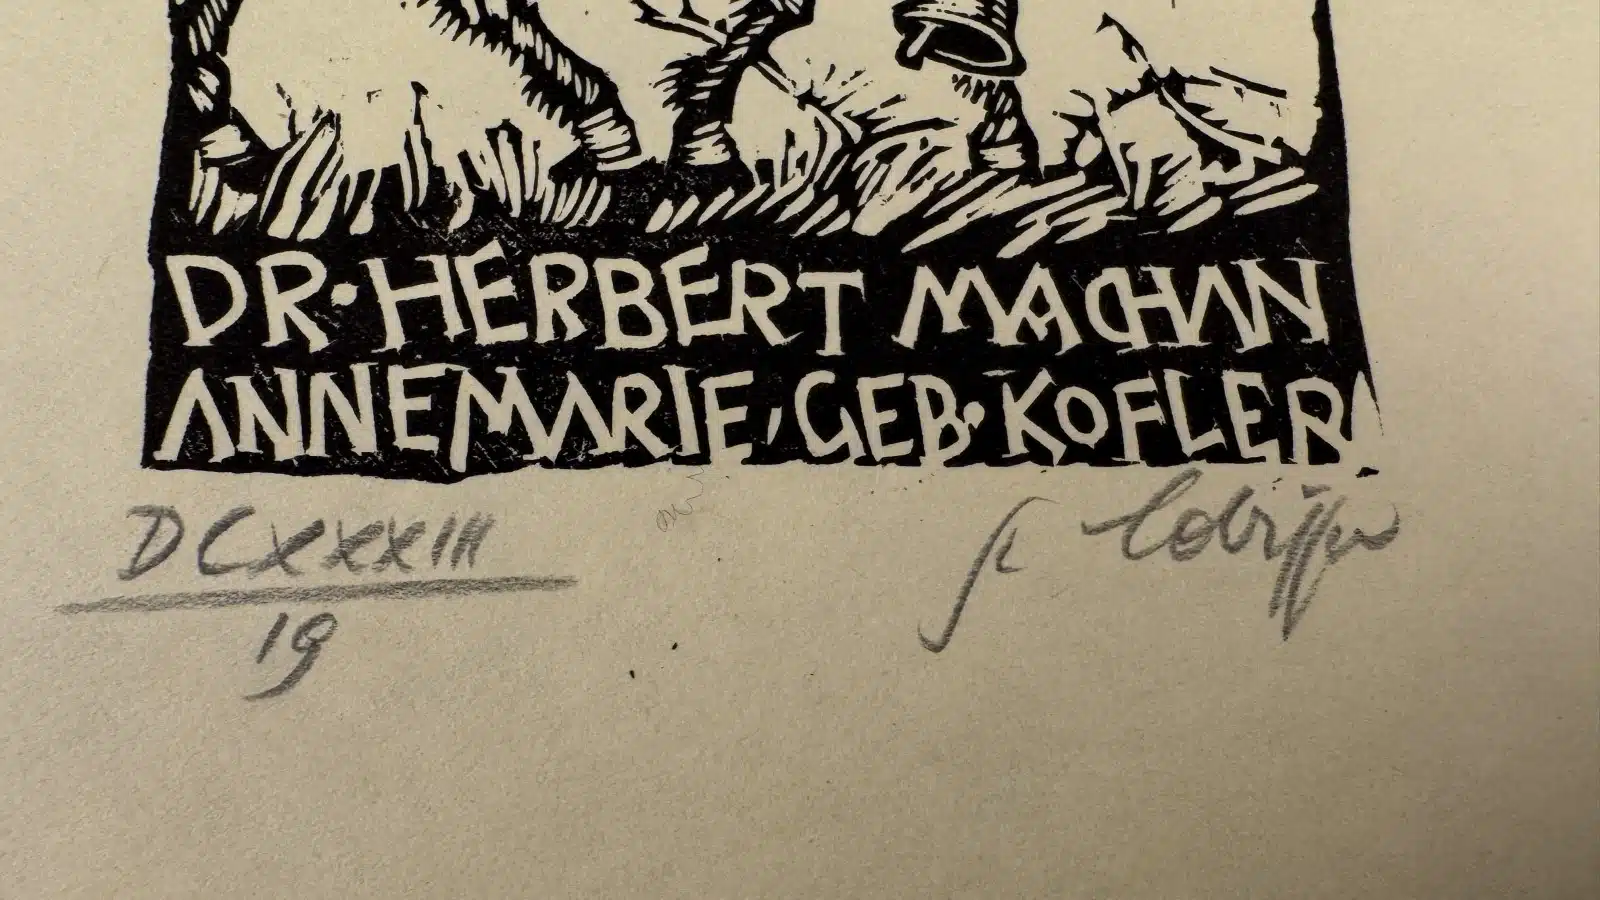 DR·HERBERT MACHAN
ANNEMARIE, GEB·KOFLER
DCXXXIII
19